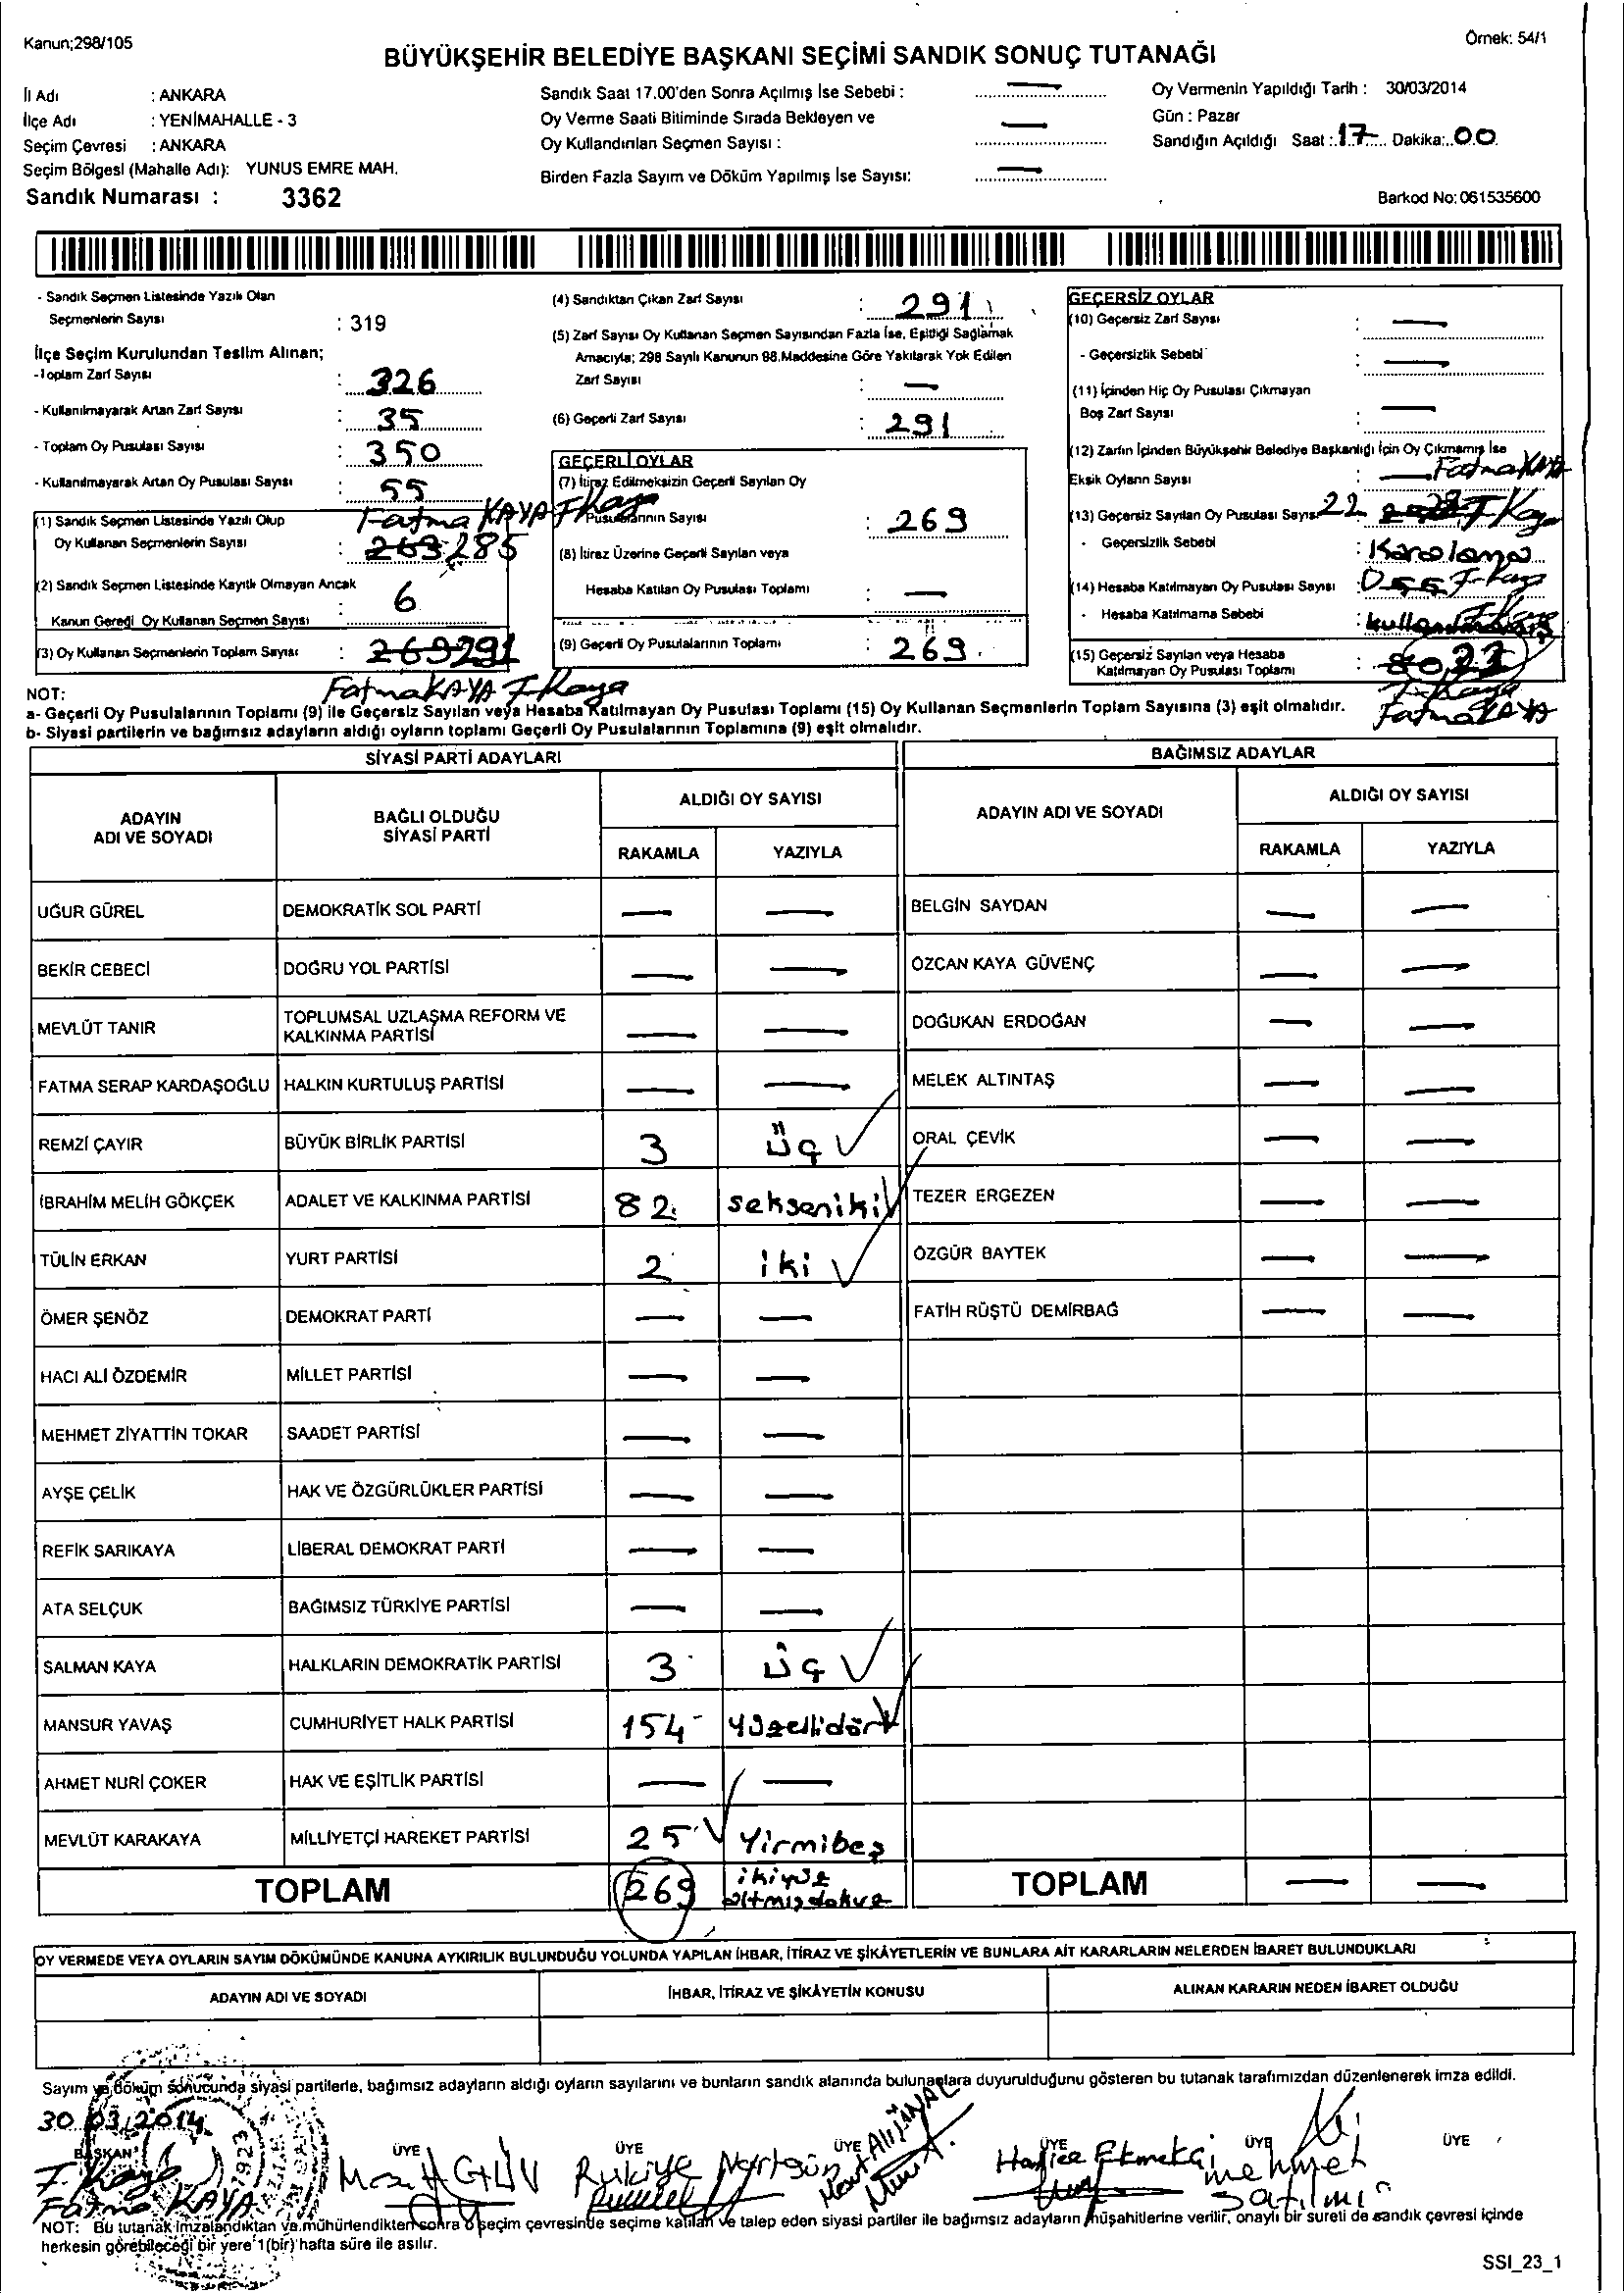 Kanun;298/105
Örnek: 54/1
BÜYÜKŞEHİR BELEDİYE BAŞKANI SEÇİMİ SANDIK SONUÇ TUTANAĞI
İl Adı : ANKARA
İlçe Adı : YENİMAHALLE - 3
Seçim Çevresi : ANKARA
Seçim Bölgesi (Mahalle Adı): YUNUS EMRE MAH.
Sandık Numarası : 3362
Sandık Saat 17.00'den Sonra Açılmış İse Sebebi : —
Oy Verme Saati Bitiminde Sırada Bekleyen ve
Oy Kullandırılan Seçmen Sayısı : —
Birden Fazla Sayım ve Döküm Yapılmış İse Sayısı: —
Oy Vermenin Yapıldığı Tarih : 30/03/2014
Gün : Pazar
Sandığın Açıldığı Saat : 17 Dakika: 00
Barkod No: 061535600
- Sandık Seçmen Listesinde Yazılı Olan
Seçmenlerin Sayısı : 319
İlçe Seçim Kurulundan Teslim Alınan;
-Toplam Zarf Sayısı : 326
- Kullanılmayarak Artan Zarf Sayısı : 35
- Toplam Oy Pusulası Sayısı : 350
- Kullanılmayarak Artan Oy Pusulası Sayısı : 55
Fatma KAYA F Kaya
(1) Sandık Seçmen Listesinde Yazılı Olup
Oy Kullanan Seçmenlerin Sayısı : 263 285
(2) Sandık Seçmen Listesinde Kayıtlı Olmayan Ancak
Kanun Gereği Oy Kullanan Seçmen Sayısı : 6
(3) Oy Kullanan Seçmenlerin Toplam Sayısı : 269 291
Fatma KAYA F Kaya
(4) Sandıktan Çıkan Zarf Sayısı : 291
(5) Zarf Sayısı Oy Kullanan Seçmen Sayısından Fazla İse, Eşitliği Sağlamak
Amacıyla; 298 Sayılı Kanunun 98.Maddesine Göre Yakılarak Yok Edilen
Zarf Sayısı : —
(6) Geçerli Zarf Sayısı : 291
GEÇERLİ OYLAR
(7) İtiraz Edilmeksizin Geçerli Sayılan Oy
Pusulalarının Sayısı : 269
(8) İtiraz Üzerine Geçerli Sayılan veya
Hesaba Katılan Oy Pusulası Toplamı : —
(9) Geçerli Oy Pusulalarının Toplamı : 269
GEÇERSİZ OYLAR
(10) Geçersiz Zarf Sayısı : —
- Geçersizlik Sebebi : —
(11) İçinden Hiç Oy Pusulası Çıkmayan
Boş Zarf Sayısı : —
(12) Zarfın İçinden Büyükşehir Belediye Başkanlığı İçin Oy Çıkmamış İse
Eksik Oyların Sayısı — Fatma KAYA
(13) Geçersiz Sayılan Oy Pusulası Sayısı 22 F Kaya
- Geçersizlik Sebebi : Karalama
(14) Hesaba Katılmayan Oy Pusulası Sayısı : 0 55 F Kaya
- Hesaba Katılmama Sebebi :
(15) Geçersiz Sayılan veya Hesaba
Katılmayan Oy Pusulası Toplamı : 80 22
F Kaya
Fatma KAYA
NOT:
a- Geçerli Oy Pusulalarının Toplamı (9) ile Geçersiz Sayılan veya Hesaba Katılmayan Oy Pusulası Toplamı (15) Oy Kullanan Seçmenlerin Toplam Sayısına (3) eşit olmalıdır.
b- Siyasi partilerin ve bağımsız adayların aldığı oyların toplamı Geçerli Oy Pusulalarının Toplamına (9) eşit olmalıdır.
SİYASİ PARTİ ADAYLARI
ADAYIN ADI VE SOYADI BAĞLI OLDUĞU SİYASİ PARTİ ALDIĞI OY SAYISI
RAKAMLA YAZIYLA
UĞUR GÜREL DEMOKRATİK SOL PARTİ — —
BEKİR CEBECİ DOĞRU YOL PARTİSİ — —
MEVLÜT TANIR TOPLUMSAL UZLAŞMA REFORM VE KALKINMA PARTİSİ — —
FATMA SERAP KARDAŞOĞLU HALKIN KURTULUŞ PARTİSİ — —
REMZİ ÇAYIR BÜYÜK BİRLİK PARTİSİ 3 üç
İBRAHİM MELİH GÖKÇEK ADALET VE KALKINMA PARTİSİ 82 sekseniki
TÜLİN ERKAN YURT PARTİSİ 2 iki
ÖMER ŞENÖZ DEMOKRAT PARTİ — —
HACI ALİ ÖZDEMİR MİLLET PARTİSİ — —
MEHMET ZİYATTİN TOKAR SAADET PARTİSİ — —
AYŞE ÇELİK HAK VE ÖZGÜRLÜKLER PARTİSİ — —
REFİK SARIKAYA LİBERAL DEMOKRAT PARTİ — —
ATA SELÇUK BAĞIMSIZ TÜRKİYE PARTİSİ — —
SALMAN KAYA HALKLARIN DEMOKRATİK PARTİSİ 3 üç
MANSUR YAVAŞ CUMHURİYET HALK PARTİSİ 154 yüzellidört
AHMET NURİ ÇOKER HAK VE EŞİTLİK PARTİSİ — —
MEVLÜT KARAKAYA MİLLİYETÇİ HAREKET PARTİSİ 25 Yirmibeş
TOPLAM 269 ikiyüz altmışdokuz
BAĞIMSIZ ADAYLAR
ADAYIN ADI VE SOYADI ALDIĞI OY SAYISI
RAKAMLA YAZIYLA
BELGİN SAYDAN — —
ÖZCAN KAYA GÜVENÇ — —
DOĞUKAN ERDOĞAN — —
MELEK ALTINTAŞ — —
ORAL ÇEVİK — —
TEZER ERGEZEN — —
ÖZGÜR BAYTEK — —
FATİH RÜŞTÜ DEMİRBAĞ — —
TOPLAM — —
OY VERMEDE VEYA OYLARIN SAYIM DÖKÜMÜNDE KANUNA AYKIRILIK BULUNDUĞU YOLUNDA YAPILAN İHBAR, İTİRAZ VE ŞİKÂYETLERİN VE BUNLARA AİT KARARLARIN NELERDEN İBARET BULUNDUKLARI
ADAYIN ADI VE SOYADI İHBAR, İTİRAZ VE ŞİKÂYETİN KONUSU ALINAN KARARIN NEDEN İBARET OLDUĞU
Sayım ve döküm sonucunda siyasi partilerle, bağımsız adayların aldığı oyların sayılarını ve bunların sandık alanında bulunanlara duyurulduğunu gösteren bu tutanak tarafımızdan düzenlenerek imza edildi.
30 03 2014
BAŞKAN ÜYE ÜYE ÜYE ÜYE ÜYE ÜYE
F. Kaya
Fatma KAYA
Rukiye
Hatice Ekmekçi
mehmet
1923
NOT: Bu tutanak imzalandıktan ve mühürlendikten sonra o seçim çevresinde seçime katılan ve talep eden siyasi partiler ile bağımsız adayların müşahitlerine verilir, onaylı bir sureti de sandık çevresi içinde
herkesin görebileceği bir yere 1(bir) hafta süre ile asılır.
SSI_23_1